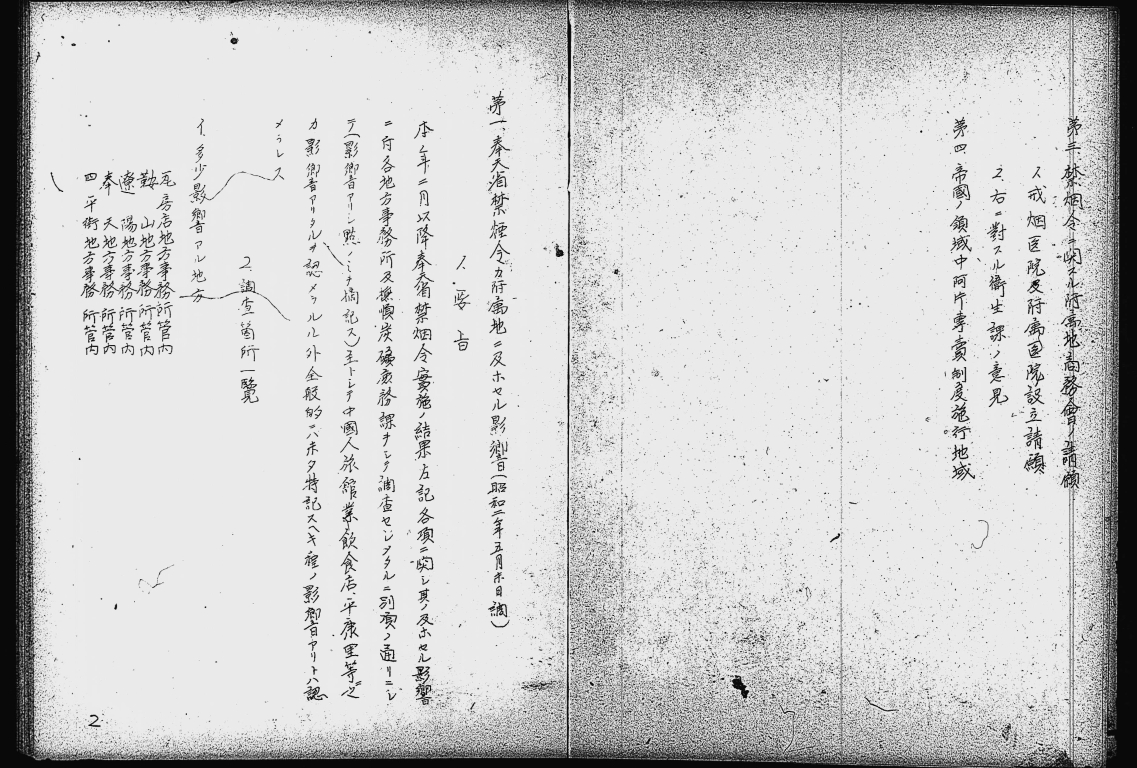 第三、禁烟令ニ関スル附属地商務會ノ請願
1. 戒烟医院及附属医院設立請願
2. 右ニ對スル衛生課ノ意見
第四、帝國ノ領域中阿片専賣制度施行地域
第一、奉天省禁煙令カ附属地ニ及ホセル影響(昭和二年五月末日調)
1. 要旨
本年二月以降奉天省禁烟令実施ノ結果左記各項ニ関シ其ノ及ホセル影響
ニ付各地方事務所及撫順炭礦庶務課ヲシテ調査センメタルニ別項ノ通リニシ
テ(影響アリシ点ノミヲ摘記ス)主トシテ中國人旅館業飲食店、平康里等ニ之
カ影響アリタルヲ認メラルル外全般的ニハホタ特記スヘキ程ノ影響アリトハ認
メラレス
2. 調査箇所一覧
イ. 多少ノ影響アル地方
瓦房店地方事務所管内
鞍山地方事務所管内
遼陽地方事務所管内
奉天地方事務所管内
四平街地方事務所管内
2